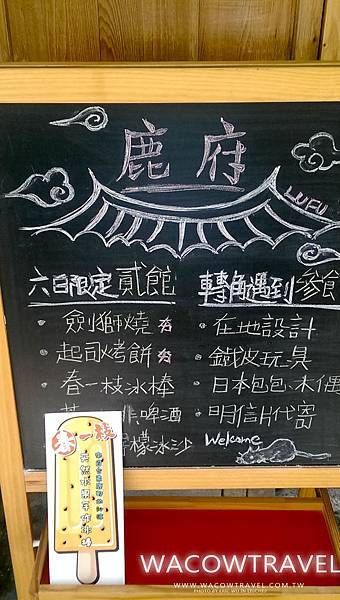 鹿府
LUFU
六日限定貳館
劍獅燒
起司烤餅
春一枝冰棒
啡 啤酒
檬冰沙
轉角遇到參館
在地設計
鐵皮玩具
日本包包、木偶
明信片代寄
Welcome
春一枝
天然水果手作冰棒
WACOWTRAVEL
WWW.WACOWTRAVEL.COM.TW